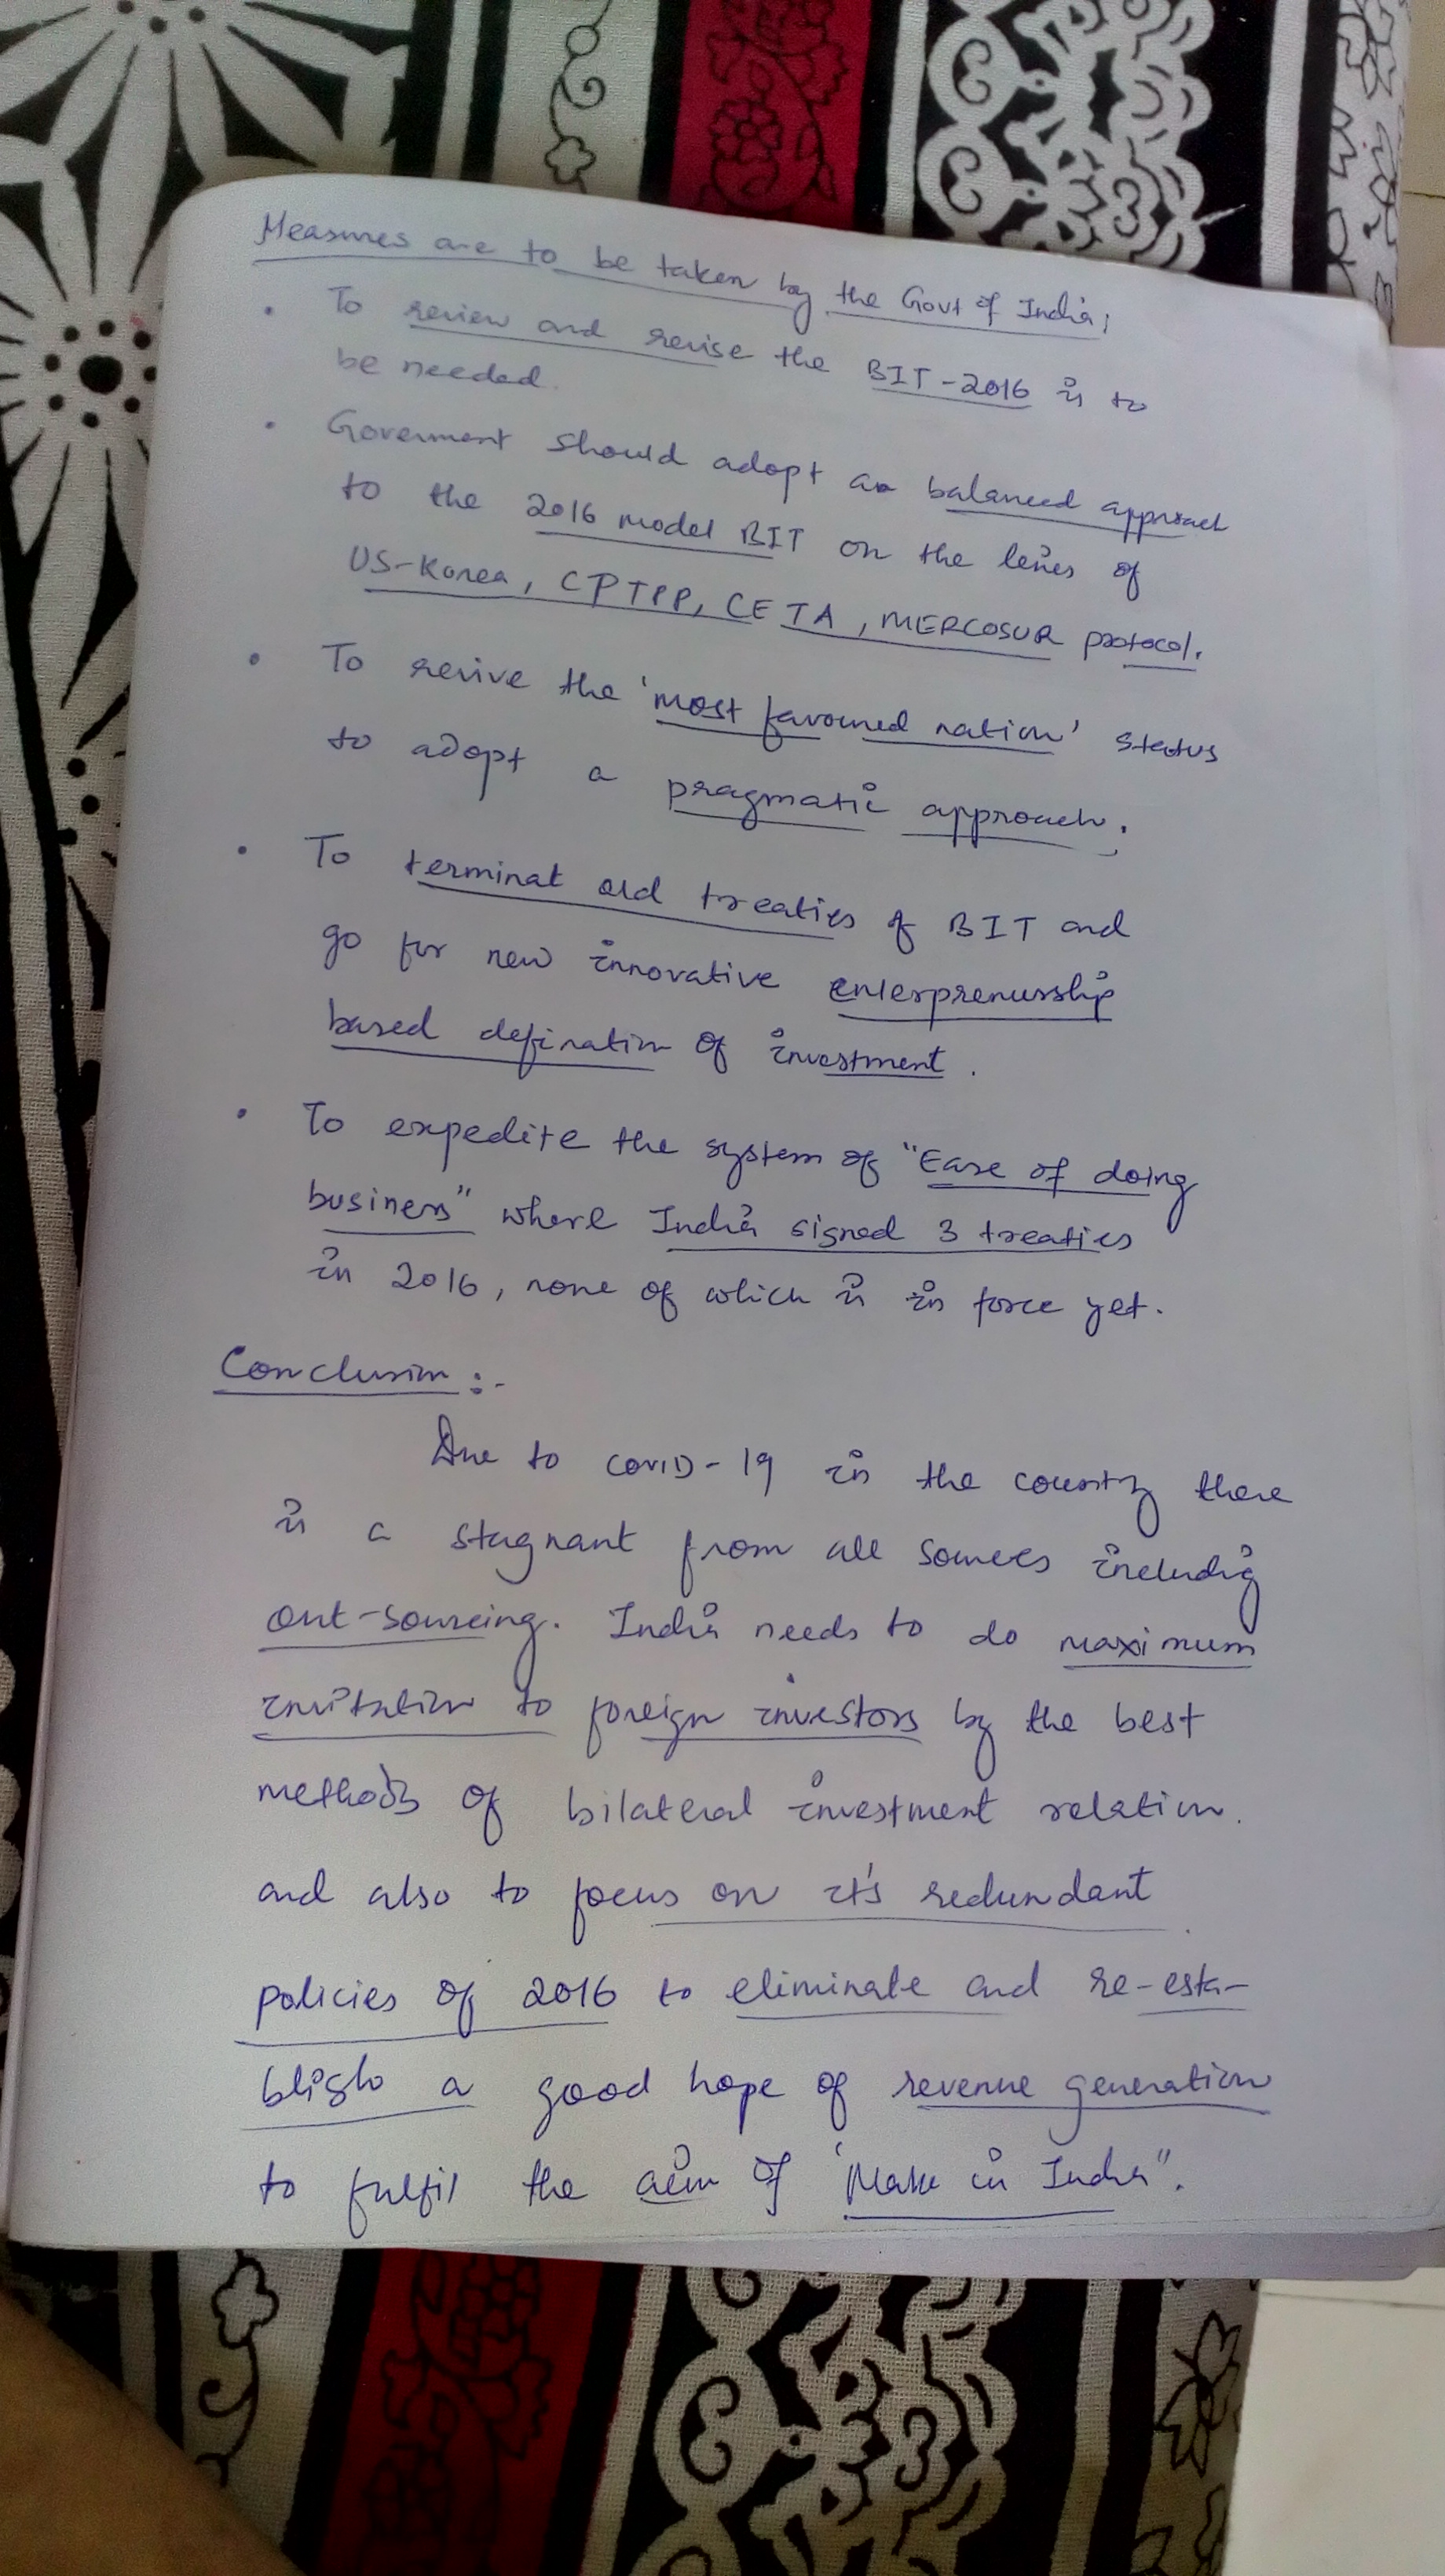 Measures are to be taken by the Govt of India;
• To review and revise the BIT-2016 is to
be needed.
• Goverment should adopt a balanced approach
to the 2016 model BIT on the lines of
US-Korea, CPTPP, CETA, MERCOSUR protocol.
• To revive the 'most favoured nation' status
to adopt a pragmatic approach.
• To terminat old treaties of BIT and
go for new innovative enterprenurship
based defination of investment.
• To expedite the system of "Ease of doing
business" where India signed 3 treaties
in 2016, none of which is in force yet.
Conclusion :-
Due to COVID-19 in the country there
is a stagnant from all sources including
out-sourcing. India needs to do maximum
invitation to foreign investors by the best
methods of bilateral investment relation.
and also to focus on it's redundant
policies of 2016 to eliminate and re-esta-
blish a good hope of revenue generation
to fulfil the aim of 'Make in India".